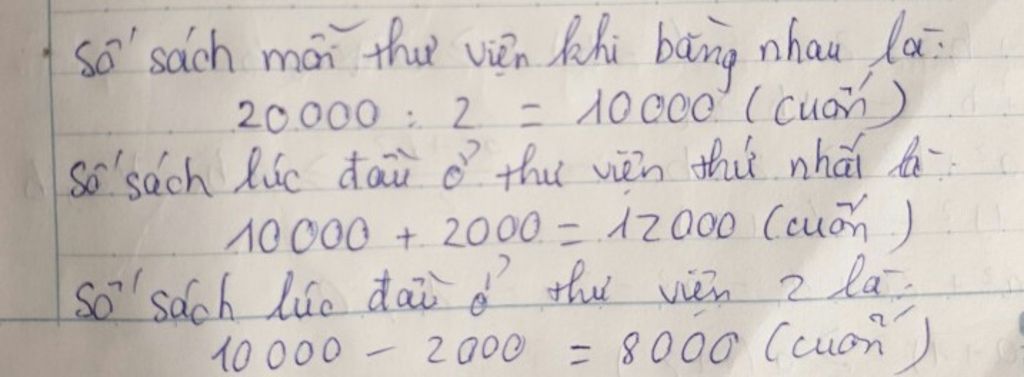 Số sách mỗi thư viện khi bằng nhau là:
20.000 : 2 = 10000 (cuốn)
Số sách lúc đầu ở thư viện thứ nhất là:
10000 + 2000 = 12000 (cuốn)
Số sách lúc đầu ở thư viện 2 là:
10000 - 2000 = 8000 (cuốn)